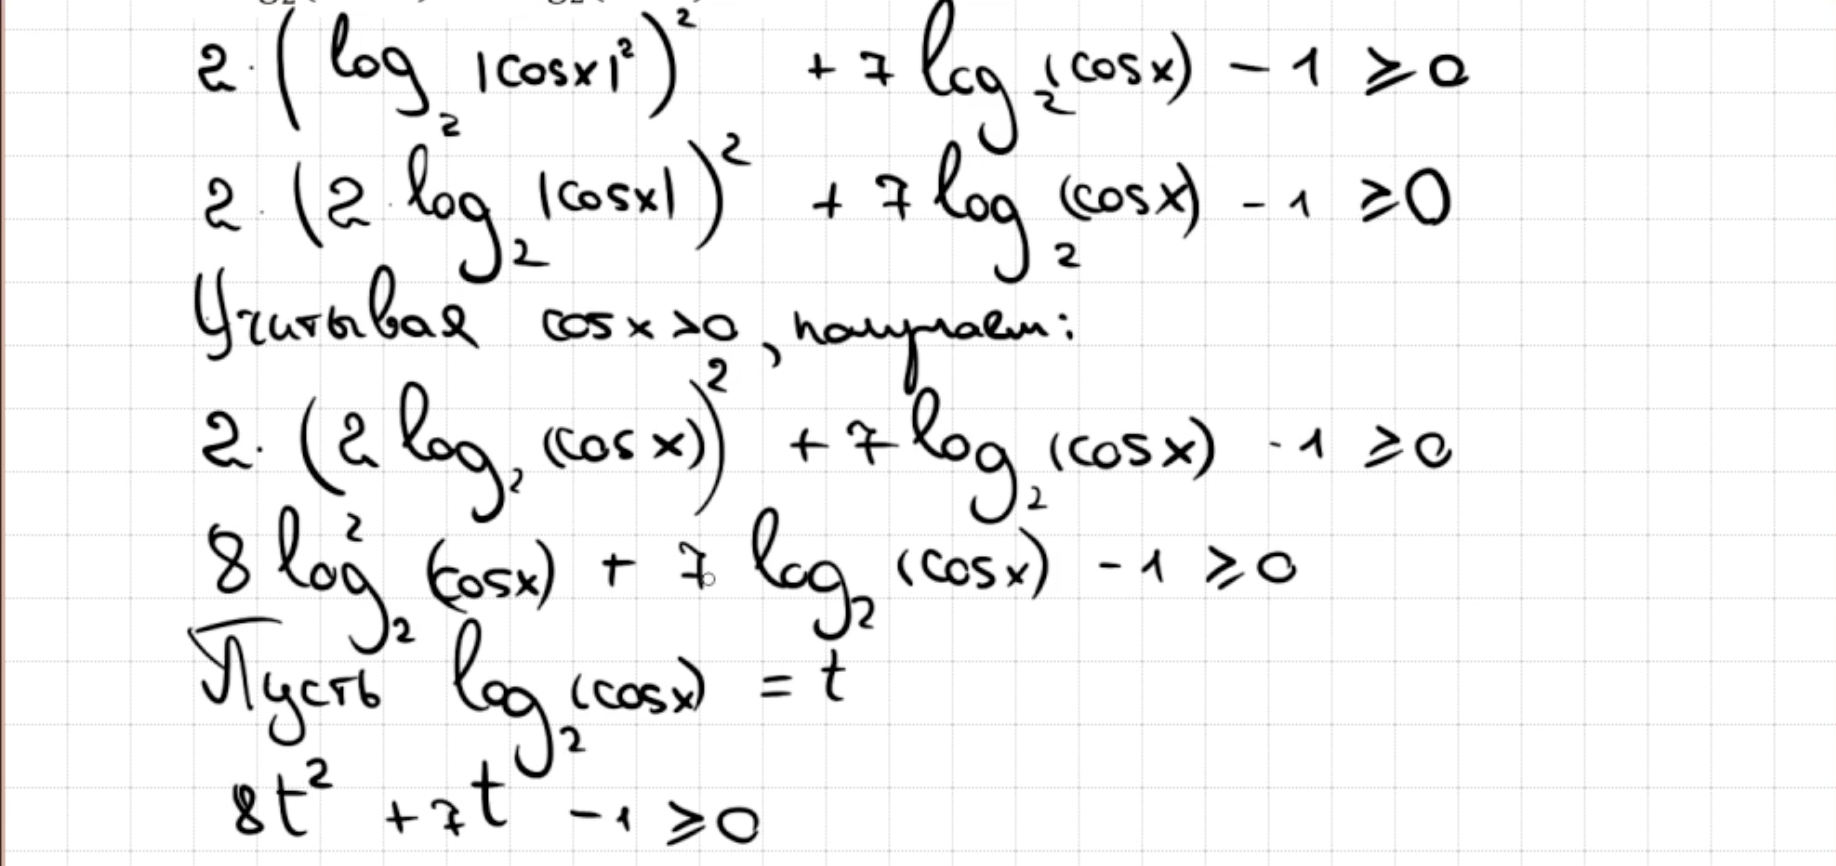 2·(log₂ |cosx|²)² + 7 log₂ (cosx) - 1 ≥ 0
2·(2·log₂ |cosx|)² + 7 log₂ (cosx) - 1 ≥ 0
Учитывая cosx>0, получаем:
2·(2 log₂ (cosx))² + 7 log₂ (cosx) - 1 ≥ 0
8 log₂² (cosx) + 7 log₂ (cosx) - 1 ≥ 0
Пусть log₂ (cosx) = t
8t² + 7t - 1 ≥ 0